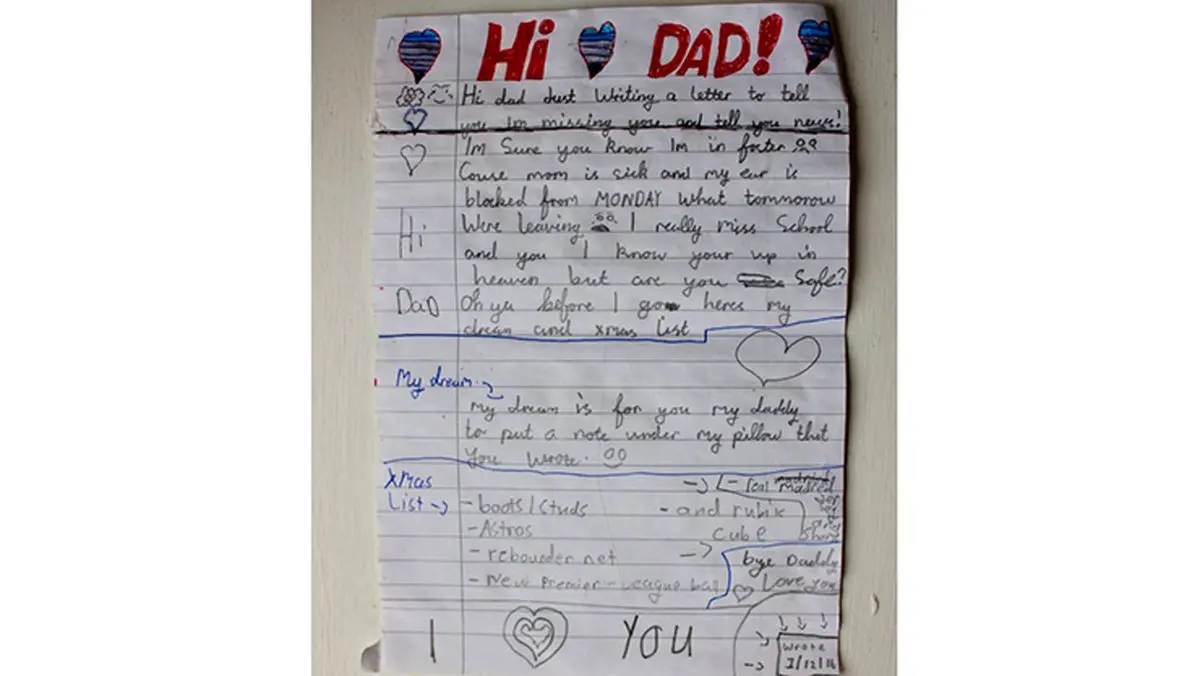 Hi DAD!
Hi dad Just Writing a letter to tell
you Im missing you and tell you news!
Im Sure you know Im in foster
Couse mom is sick and my ear is
blocked from MONDAY What tommorow
Hi
Were leaving I really miss School
and you I know your up in
heaven but are you Safe?
DaD
Oh ya before I go heres my
dream and xmas list
My dream
My dream is for you my daddy
to put a note under my pillow that
you wrote.
Xmas
List
- boots/studs
- Astros
- rebounder net
- New Premier-League ball
- real madrid
- and rubix
cube
bye Daddy
Love you
I YOU
Wrote